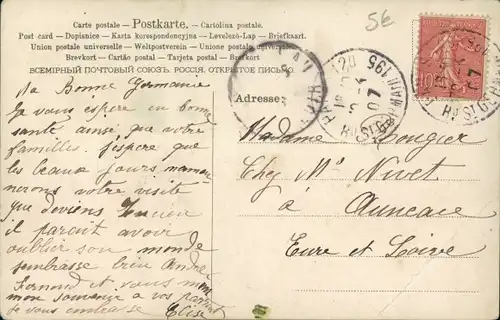 Carte postale - Postkarte. - Cartolina postale
5€
Post card - Dopisnice - Karta korespondencyjna - Levelező-Lap - Briefkaart
Union postale universelle - Weltpostverein - Unione postale universale
Brevkort - Cartão postal - Tarjeta postal - Brefkort
ВСЕМІРНЫЙ ПОЧТОВЫЙ СОЮЗЪ. РОССІЯ. ОТКРЫТОЕ ПИСЬМО.
Adresse:
10
Ma Bonne Germaine
Je vous espère en bonne
santé ainsi que votre
familles. J'espère que
les beaux jours
nerons votre visite
que deviens Lucien
il parait avoir
oublier son monde
embrasse bien André
Fernond et vous
mon souvenir a vos
je vous embrasse Elise
Madame Rougier
Chez Mr Nivet
à Auneau
Eure et Loire